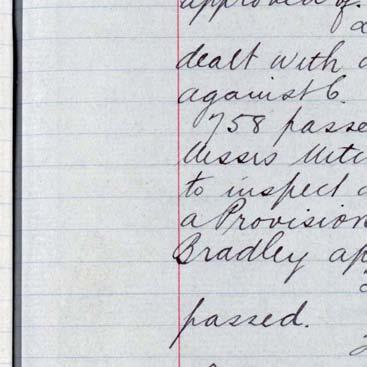 approved of.
dealt with
against 6.
758 passe
Messrs Mitc
to inspect
a Provision
Bradley ap
passed.